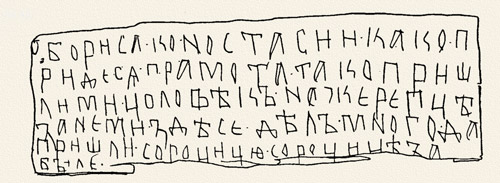 ѿ·БОРИСА·КОNОСТАСИИ·КАКО·П
РИДЕСѦ·ГРАМОТА·ТАКОПРИШ
ЛИМИ·ЦОЛОВѢКЪ·NАЖЕРЕПЦѢ
ЗАNЕМИЗДѢСЕ·ДѢЛЪМNОГОДА
ПРИШЛИ·СОРОЦИЦЮ·СОРОЦИЦѢЗА
БЫЛЕ·